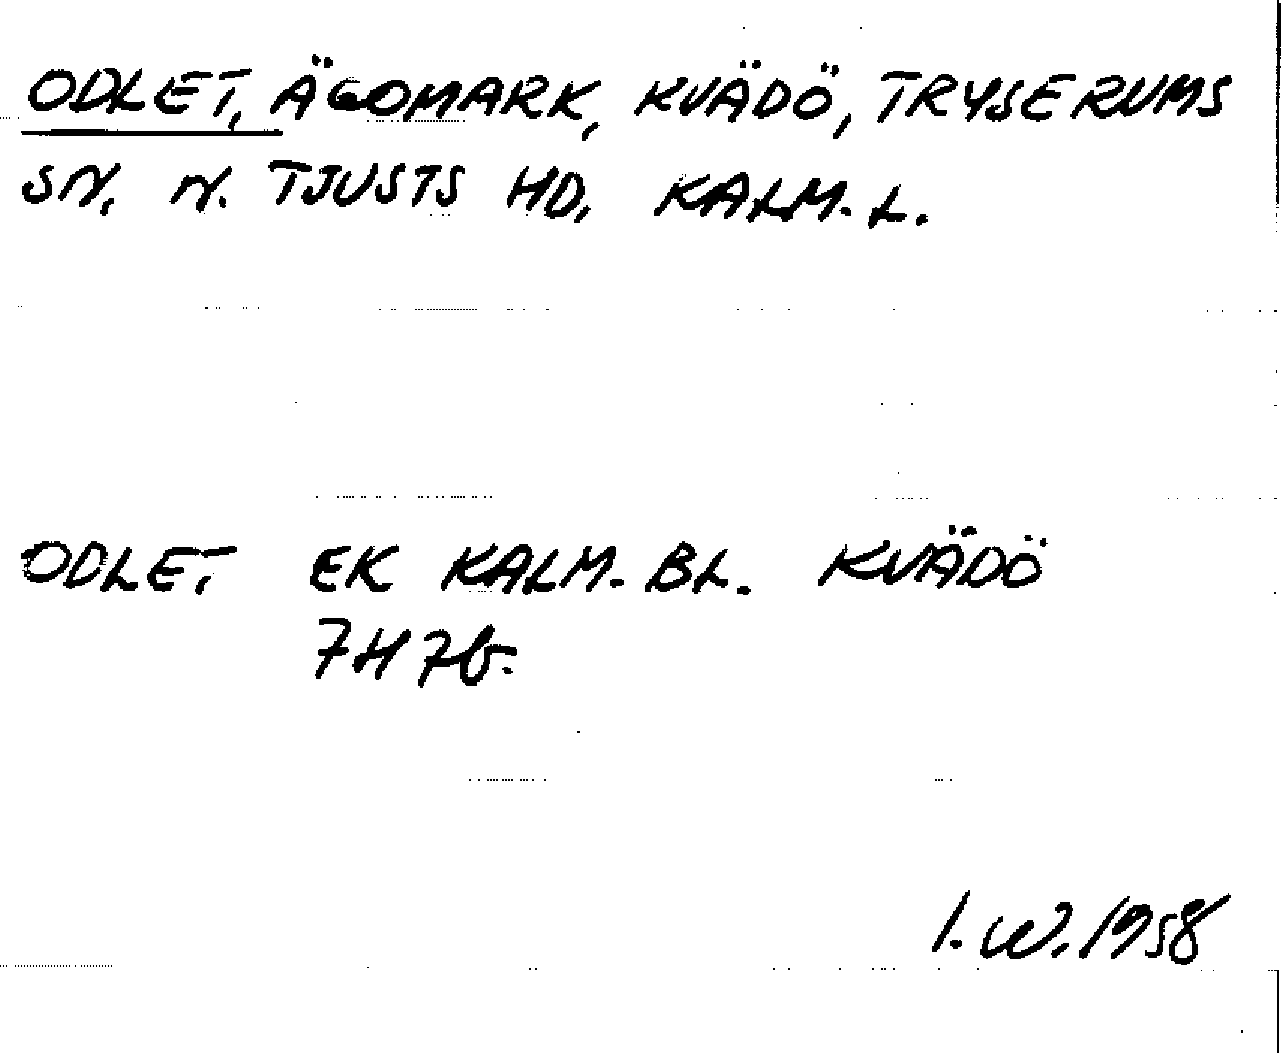 ODLET, ÄGOMARK, KVÄDÖ, TRYSERUMS
SN. N. TJUSTS HD. KALM. L.
ODLET EK KALM. BL. KVÄDÖ
7H7b.
I. W. 1958